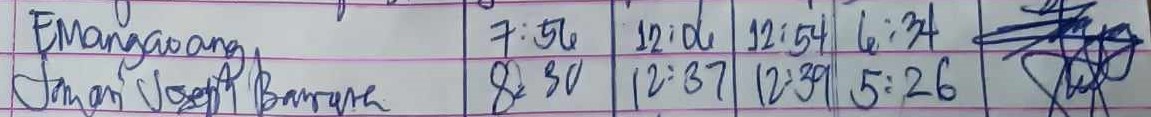 EMangaoang 7:56 12:06 12:54 6:34
Joseph 8:30 12:37 12:39 5:26